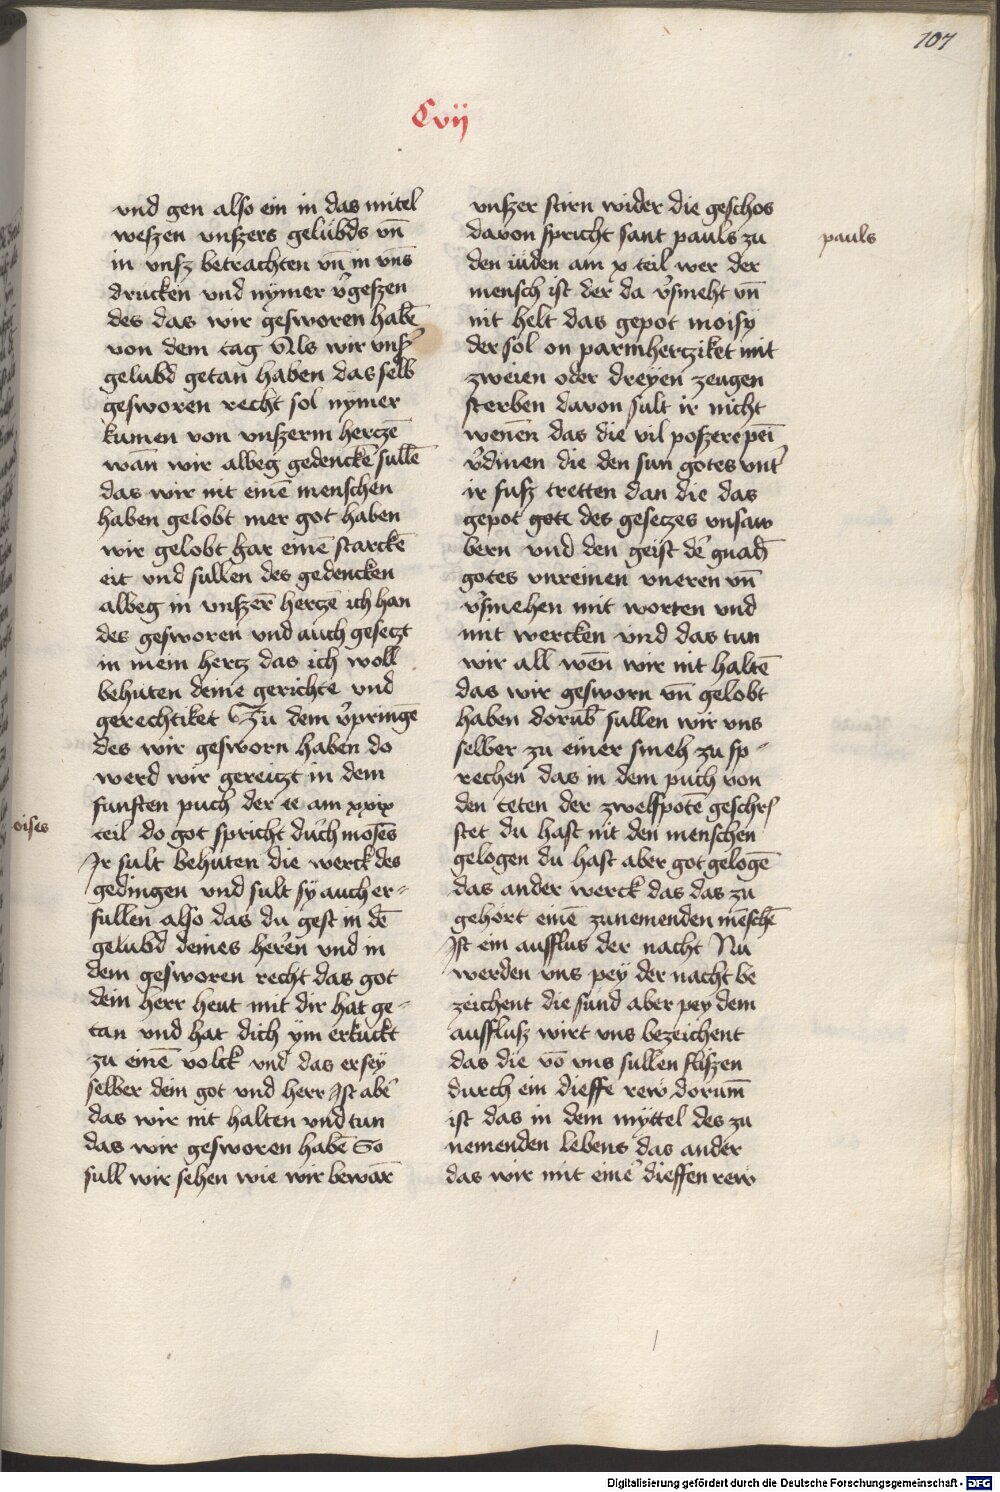 107
Cvij
vnd gen also ein in das mitel
weszen vnszers gelübds vn̄
in vnsz betrachten vn̄ in vns
drucken vnd nÿmer v̾geszen
des das wir gesworen habē
von dem tag Als wir vnsz̾
gelubd getan haben das selb
gesworen recht sol nÿmer
kumen von vnszerm herczē
wān wir albeg gedenckē sullē
das wir nit einē menschen
haben gelobt mer got haben
wir gelobt gar einē starckē
eit vnd sullen des gedencken
albeg in vnszer̄ herczē ich han
des gesworen vnd auch gesetzt
in mein hertz das ich woll
behuten deine gerichte vnd
gerechtiket Zu dem v̾pringē
des wir gesworn haben do
werd wir gereitzt in dem
funften puch der ee am xxix
teil do got spricht duch moses
Ir sult behuten die werck des
gedingen vnd sult sÿ auch er⸗
fullen also das du gest in dē
gelubd deines heren vnd in
dem gesworen recht das got
dein herr heut mit dir hat ge⸗
tan vnd hat dich ÿm erkuckt
zu einē volck vnd das er seÿ
selber dein got vnd herr Ist abe̾
das wir nit halten vnd tun
das wir gesworen habē So
sull wir sehen wie wir bewar̄
oises
vnszer stirn wider die geschos
davon spricht sant pauls zu
den iuden am x teil wer der
mensch ist der da v̾smeht vn̄
nit helt das gepot moisÿ
der sol on parmhercziket mit
zweien oder dreÿen zeugen
sterben davon sult ir nicht
wenen das die vil poszere pei
v̾dinen die den sun gotes vnt̾
ir fusz tretten dan die das
gepot gote des gesetzes vnsaw
bern vnd den geist de̾ gnad̄
gotes vnreinen vneren vn̄
v̾smehen mit worten vnd
mit wercken vnd das tun
wir all wēn wir nit haltē
das wir gesworn vn̄ gelobt
haben dorub̾ sullen wir vns
selber zu einer smeh zu sp⸗
rechen das in dem puch von
den teten der zwelfpotē geschrī
stet du hast nit den menschen
gelogen du hast aber got gelogē
das ander werck das das zu
gehört einē zunemenden mēschē
Ist ein aufflus der nacht Nu
werden vns peÿ der nacht be
zeichent die sund aber peÿ dem
auffllusz wirt vns bezeichent
das die vō vns sullen fliszen
durch ein dieffe rew dorum̄
ist das in dem mÿttel des zu
nemenden lebens das ander
das wir mit einē dieffen rew
pauls
Digitalisierung gefördert durch die Deutsche Forschungsgemeinschaft - DFG